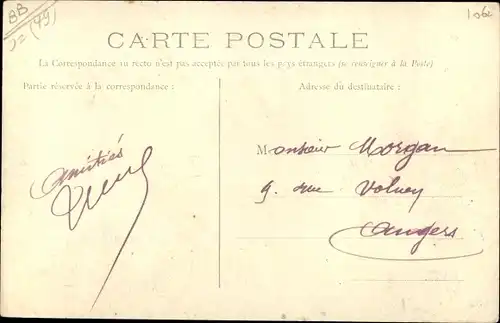 88
(49)
106
CARTE POSTALE
La Correspondance au recto n'est pas acceptée par tous les pays étrangers (se renseigner à la Poste)
Partie réservée à la correspondance :
Adresse du destinataire :
amitiés
Monsieur Morgan
9. rue Volney
Angers